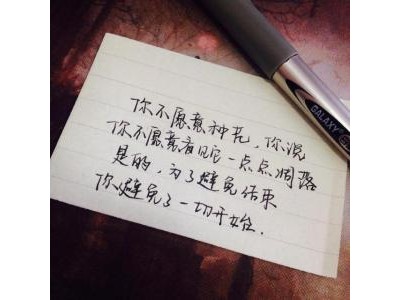 你不愿意种花，你说
你不愿意看见它一点点凋落
是的，为了避免结束
你避免了一切开始.
GALAXY